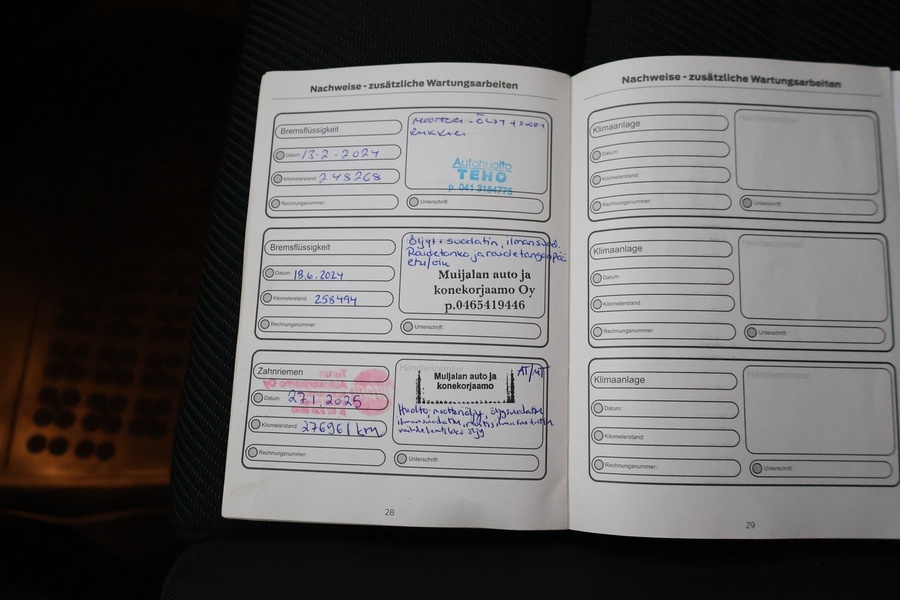 Nachweise - zusätzliche Wartungsarbeiten
Bremsflüssigkeit
Datum: 13-2-2024
Kilometerstand: 248268
Rechnungsnummer:
Autohuolto
TEHO
p. 041 3184775
Unterschrift:
Bremsflüssigkeit
Datum: 18.6.2024
Kilometerstand: 258494
Rechnungsnummer:
Öljyt + suodatin, ilmansuod.
Raidetanko ja raidetangonpää
etu/oik
Muijalan auto ja
konekorjaamo Oy
p.0465419446
Unterschrift:
Zahnriemen
Datum: 27.1.2025
Kilometerstand: 276961 km
Rechnungsnummer:
Muijalan auto ja
konekorjaamo
Huolto, moottoriöljy, öljysuodatin
Unterschrift:
28
Nachweise - zusätzliche Wartungsarbeiten
Klimaanlage
Datum:
Kilometerstand:
Rechnungsnummer:
Händlerstempel
Unterschrift:
Klimaanlage
Datum:
Kilometerstand:
Rechnungsnummer:
Händlerstempel
Unterschrift:
Klimaanlage
Datum:
Kilometerstand:
Rechnungsnummer:
Händlerstempel
Unterschrift:
29